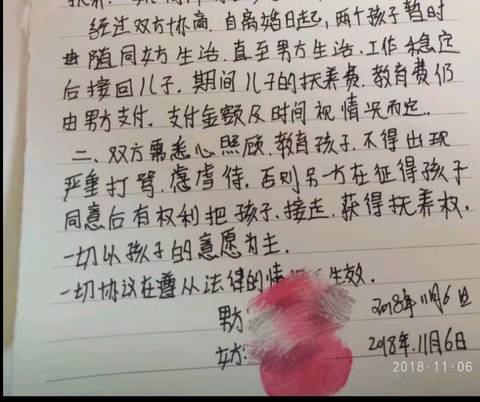 经过双方协商,自离婚日起,两个孩子暂时
由随同女方生活,直至男方生活、工作稳定
后接回儿子,期间儿子的抚养费、教育费仍
由男方支付,支付金额及时间视情况而定。
二、双方需悉心照顾、教育孩子,不得出现
严重打骂、虐待,否则另一方在征得孩子
同意后有权利把孩子接走,获得抚养权,
一切以孩子的意愿为主。
一切协议在遵从法律的情 生效.
男方 2018年11月6日
女方: 2018年.11月6日
2018-11-06